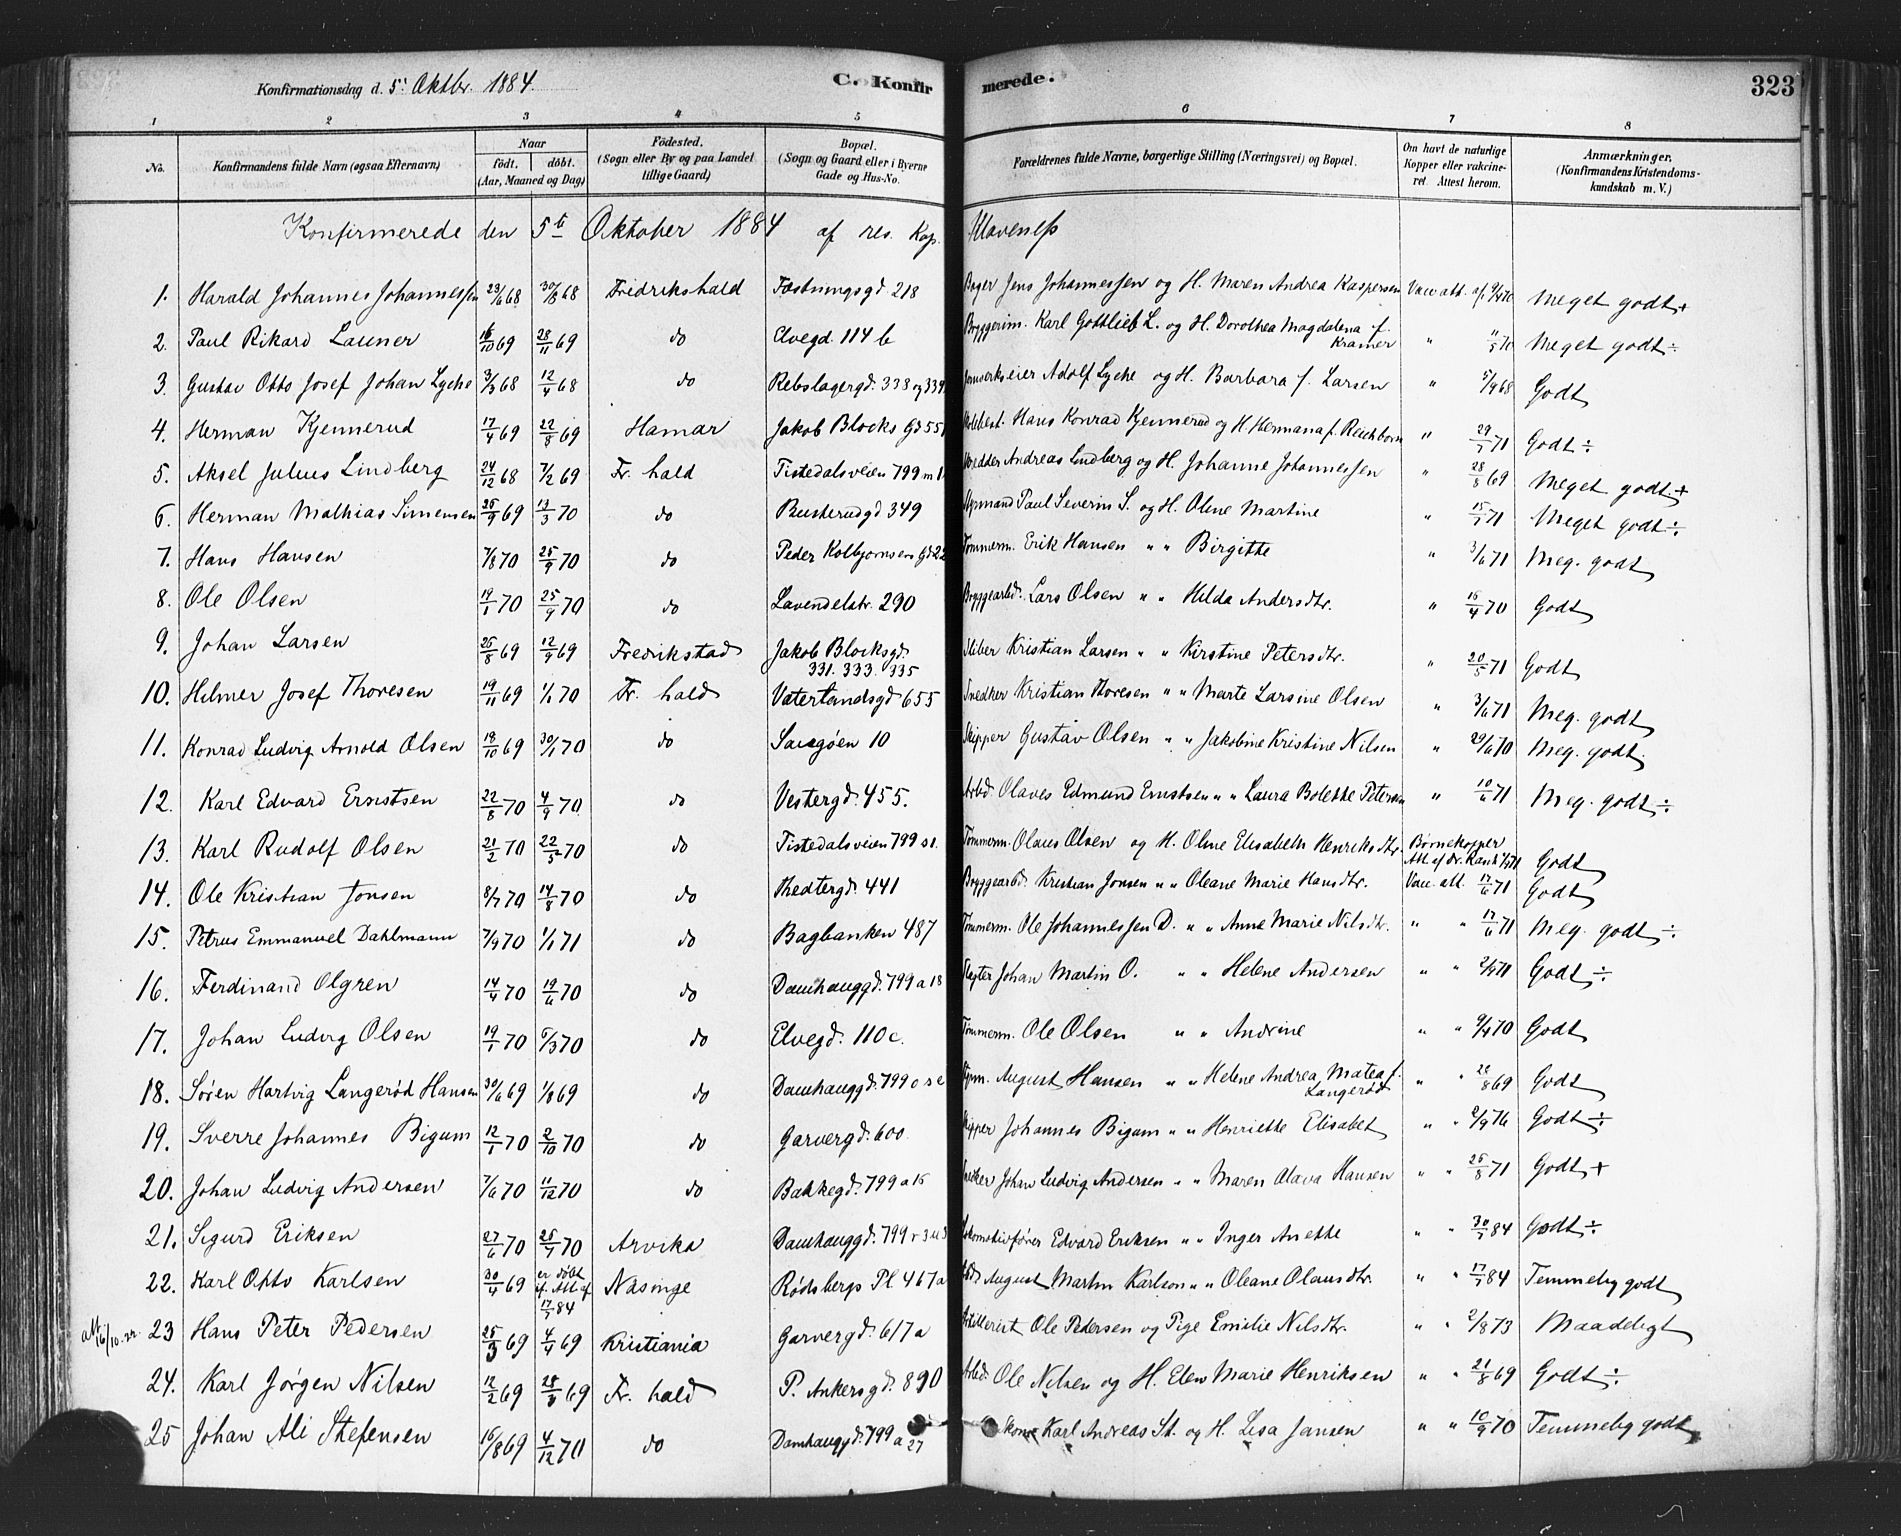 Konfirmationsdag d. 5' Oktbr. 1884. C. Konfirmerede. 323
1 2 3 4 5 6 7 8
No. Konfirmandens fulde Navn (ogsaa Efternavn) Naar födt. döbt. (Aar, Maaned og Dag) Födested. (Sogn eller By og paa Landet tillige Gaard) Bopæl. (Sogn og Gaard eller i Byerne Gade og Hus-No. Forældrenes fulde Navne, borgerlige Stilling (Næringsvei) og Bopæl. Om havt de naturlige Kopper eller vakcineret. Attest herom. Anmærkninger. (Konfirmandens Kristendomskundskab m. V.)
Konfirmerede den 5te Oktober 1884 af res. Kap. Klaveness
1. Harald Johannes Johannessen 23/6 68 30/8 68 Fredrikshald Fæstningsgd 218 Jens Johannessen og H. Maren Andrea Kaspersen Vacc att. af Meget godt +
2. Paul Rikard Launer 16/10 69 28/11 69 do Elvegd. 114 b Bryggerim. Karl Gottlieb L. og H. Dorothea Magdalena f. Kramer " 11/5 70 Meget godt ÷
3. Gustav Otto Josef Johan Lyche 3/3 68 12/4 68 do Rebslagergd. 338 og 339 Jernverkseier Adolf Lyche og H. Barbara f. Larsen " 5/9 68 Godt
4. Herman Kjennerud 17/4 69 22/8 69 Hamar Jakob Blocks Gd 551 Hans Konrad Kjennerud og H. Hermana f. Reichborn " 29/7 71 Godt ÷
5. Aksel Julius Lindberg 24/12 68 7/2 69 Fr. hald Tistedalsveien 799 m 1 Andreas Lindberg og H. Johanne Johannessen " 28/8 69 Meget godt +
6. Herman Mathias Simensen 26/9 69 13/3 70 do Busterudgd 349 Styrmand Paul Severin S. og H. Oline Martine " 15/7 71 Meget godt ÷
7. Hans Hansen 7/8 70 25/9 70 do Peder Kolbjørnsens Gd 22 Tømmerm. Erik Hansen " " Birgitte " 3/6 71 Meg. godt
8. Ole Olsen 19/1 70 25/9 70 do Lavendelstr. 290 Bryggearbd. Lars Olsen " " Hilda Andersdtr. " 16/4 70 Godt
9. Johan Larsen 26/8 69 12/9 69 Fredrikstad Jakob Blocksgd. 331. 333. 335 Kristian Larsen " " Kirstine Petersdtr. " 20/5 71 Godt
10. Hilmer Josef Thoresen 19/11 69 1/1 70 Fr. hald Vaterlandsgd 655 Snedker Kristian Thoresen " " Marte Larsine Olsen " 3/6 71 Meg. godt
11. Konrad Ludvig Arnold Olsen 18/10 69 30/1 70 do Saugøen 10 Skipper Gustav Olsen " " Jakobine Kristine Nilsen " 29/6 70 Meg. godt
12. Karl Edvard Ernstsen 22/8 70 4/9 70 do Vestergd. 455. Arbd. Olaves Edmund Ernstsen " " Laura Bolette Petersen " 10/6 71 Meg. godt ÷
13. Karl Rudolf Olsen 21/2 70 22/5 70 do Tistedalsveien 799 s 1. Tømmerm. Olaus Olsen og H. Oline Elisabeth Henriksdtr. Børnekopper Att af Dr. Godt
14. Ole Kristian Jonsen 8/7 70 14/8 70 do Theatergd. 441 Bryggearbd. Kristian Jonsen " " Oleane Marie Hansdtr. Vacc. att. 17/6 71 Godt
15. Petrus Emmanuel Dahlmann 7/9 70 1/1 71 do Bagbanken 487 Tømmerm. Ole Johannessen D. " " Anne Marie Nilsdtr. " " 17/6 71 Meg. godt ÷
16. Ferdinand Olgren 14/4 70 19/6 70 do Damhauggd. 799 a 18 Johan Martin O. " " Helene Andersen " " 2/9 71 Godt ÷
17. Johan Ludvig Olsen 19/1 70 6/3 70 do Elvegd. 110 c. Tømmerm. Ole Olsen " " Andrine " " 9/4 70 Godt
18. Søren Hartvig Langerød Hansen 30/6 69 1/8 69 do Damhauggd. 799 o s e Styrm. August Hansen " " Helene Andrea Matea f. Langerød " " 28/8 69 Godt
19. Sverre Johannes Bigum 12/1 70 2/10 70 do Garvergd. 600 Skipper Johannes Bigum " " Henriette Elisabet " " 2/9 76 Godt ÷
20. Johan Ludvig Andersen 7/6 70 11/12 70 do Bakkegd. 799 a 15 Johan Ludvig Andersen " " Maren Olava Hansen " " 26/8 71 Godt +
21. Sigurd Eriksen 27/6 70 25/7 70 Arvika Damhauggd. 799 Lokomotivfører Edvard Eriksen " " Inger Anette " " 30/7 84 Godt ÷
22. Karl Otto Karlsen 30/4 69 er døbt if. Att af 17/7 84 Näsinge Rødsbergs Pl. 467 a Arbd. August Martin Karlson " " Oleane Olausdtr. " " 17/7 84 Temmelig godt
att 16/10. 22. 23 Hans Peter Pedersen 25/3 69 4/4 69 Kristiania Garvergd. 617 a Artillerist Ole Pedersen og Pige Emilie Nilsdtr. " " 2/8 73 Maadeligt
24. Karl Jørgen Nilsen 12/2 69 28/3 69 Fr. hald P. Ankersgd. 890 Arbd. Ole Nilsen og H. Elen Marie Henriksen " " 21/8 69 Godt ÷
25 Johan Ali Stefensen 16/8 69 4/12 70 do Damhauggd. 799 a 27 Karl Andreas St. og H. Lisa Jansen " " 10/9 70 Temmelig godt